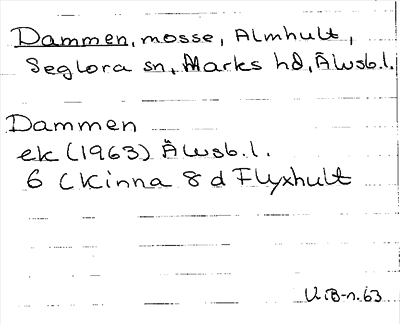 Dammen, mosse, Almhult,
Seglora sn, Marks hd, Älvsb. l.
Dammen
ek (1963) Älvsb. l.
6 C Kinna 8 d Flyxhult
U.B-n. 63